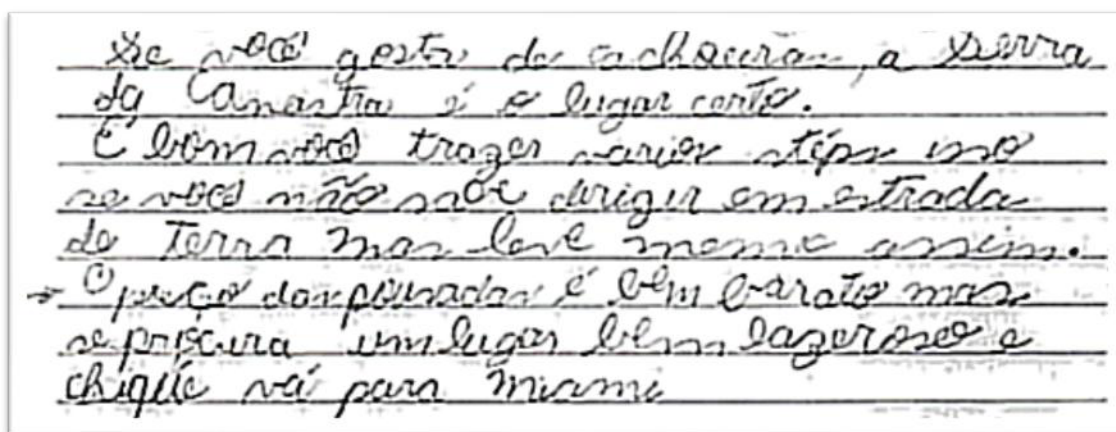 Se você gosta de cachoeiras, a Serra
da Canastra é o lugar certo.
É bom você trazer varios steps isso
se você não sabe dirigir em estrada
de terra mas leve mesmo assim.
O preço das pousadas é bem barato mas
se procura um lugar bem lazeroso e
chique vá para Miami